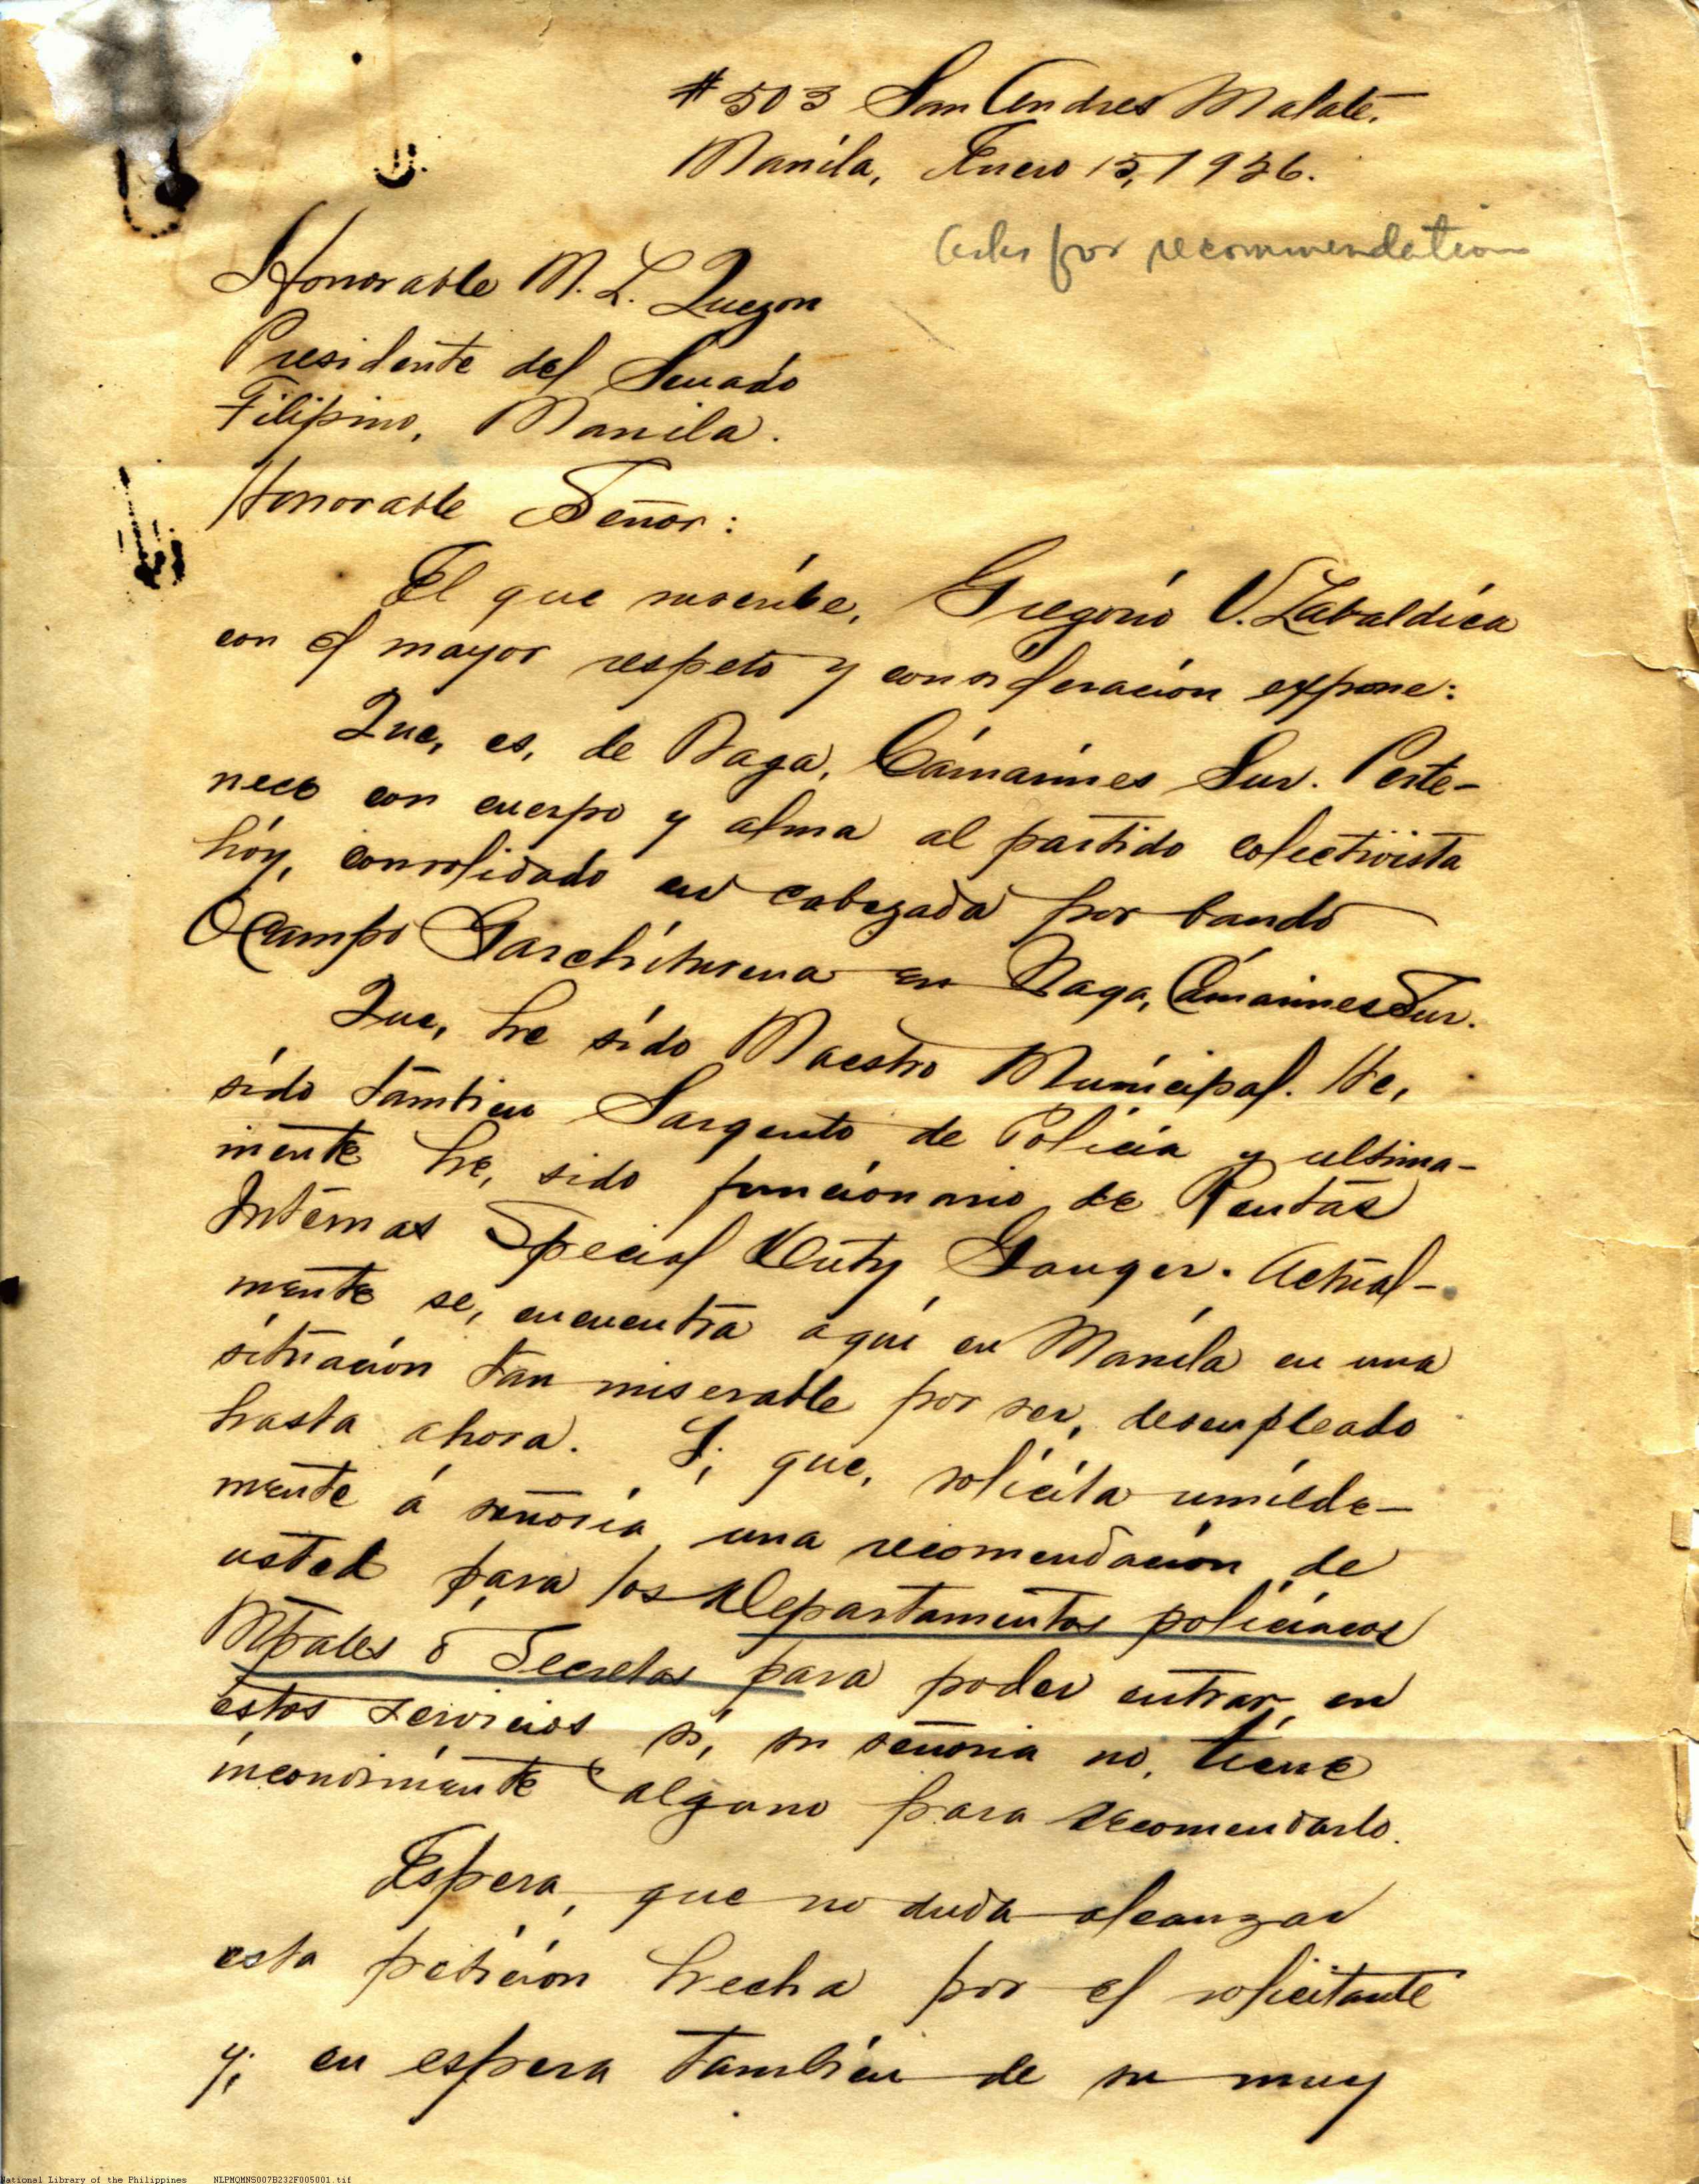 # 503 San Andres Malate.
Manila, Enero 15, 1926.
Asks for recommendation
Honorable M. L. Quezon
Presidente del Senado
Filipino, Manila.
Honorable Señor:
El que suscribe, Gregorio V. Zabaldica
con el mayor respeto y consideración expone:
Que, es, de Naga, Cámarines Sur. Perte-
nece con cuerpo y alma al partido colectivista
hóy, consolidado en cabezada por bando
Ocampo Garchitorena en Naga, Cámarines Sur.
Que, he sído Maestro Munícipal. He,
sído tambien Sargento de Policía y ultima-
mente he, sido funcionario de Rentas
Internas Special Duty Gauger. Actual-
mente se, encuentra aquí en Manila en una
situación tan miserable por ser, desempleado
hasta ahora. Y; que, solícita umílde-
mente á señoría una recomendación de
usted para los Departamentos policíacos
Mpales ó Secretas para poder entrar, en
estos servicios sí, su señoria no, tiene
inconviniente alguno para recomendarlo.
Espera, que no duda alcanzar
esta petición hecha por el solicitante
y; en espera tambien de su muy
National Library of the Philippines NLPMQMNS007B232F005001.tif